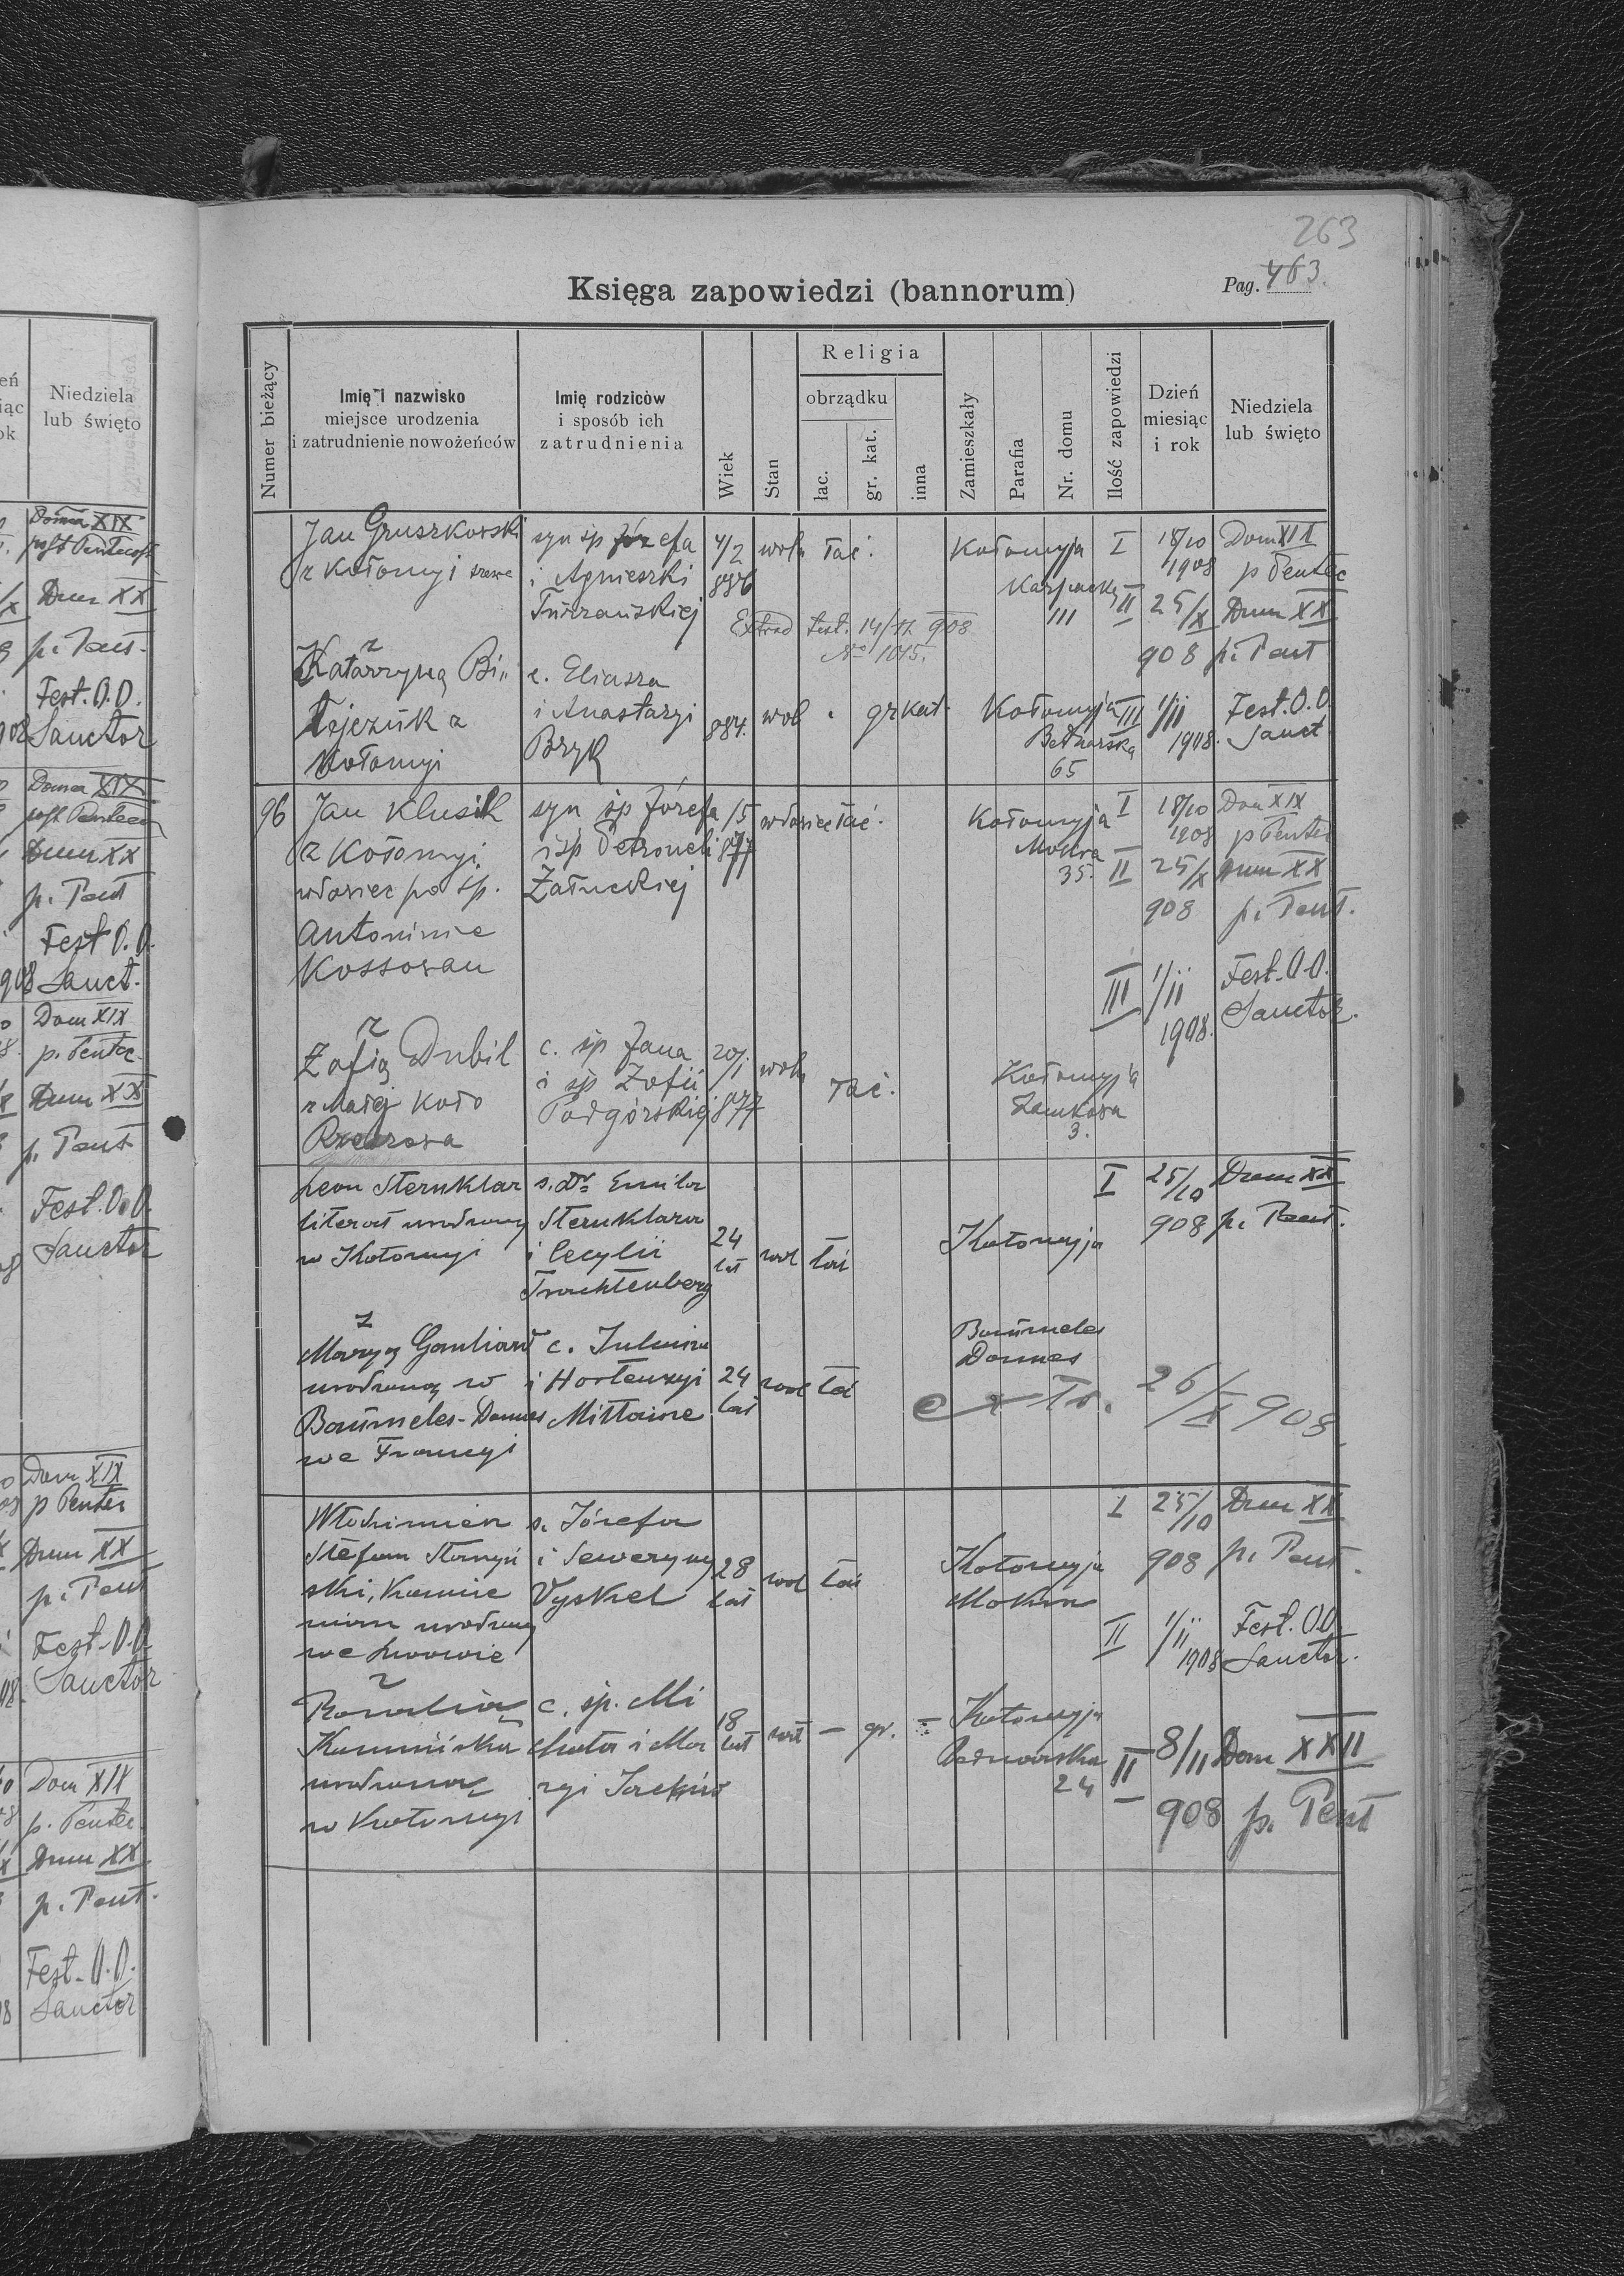 263
Księga zapowiedzi (bannorum)
Pag. 463.
Numer bieżący
Imię i nazwisko
miejsce urodzenia
i zatrudnienie nowożeńców
Imię rodziców
i sposób ich
zatrudnienia
Wiek
Stan
Religia
obrządku
łac.
gr. kat.
inna
Zamieszkały
Parafia
Nr. domu
Ilość zapowiedzi
Dzień
miesiąc
i rok
Niedziela
lub święto
Jan Gruszkowski syn śp Józefa 4/2 woln łac. Kołomyja I 18/10 Dom XIX
z Kołomyi szewc i Agnieszki 886 1908 p Pentec
II 25/X Dum XX
111
Extrad test. 14/11 908
No 1015.
908 p. Pent
z
Katarzyną Bi c. Eliasza
i Anastazyi 884. wol . gr kat Kołomyja III 1/11 Fest. O.O.
Bryk 1908. Sanct
Kołomyi 65
96 Jan Klusik syn śp Józefa 15 wdowiec łac. Kołomyja I 18/10 Dom XIX
z Kołomyi i śp Petroneli 877 Mokra 1908 p Pentec
wdowiec po śp. Załuckiej 35. II 25/X Dum XX
Antoninie 908 p. Pent.
Kossowan
III 1/11 Fest. O.O.
1908. Sanctor.
z
Zofią Dubil c. śp Jana 20/1 woln
z Małej koło i śp Zofii łac. Kołomyja
Podgórskiej 877 Zamkowa
3.
Leon Sternklar s. Dr Emila I 25/10 Dum XX
literat urodzony Sternklara 24 908 p. Pent.
w Kołomyi i Cecylii lat wol łać Kołomyja
Trachtenberg
z
Maryą c. Juliusza
urodzoną w i Hortenzyi 24 wol łać
Mittaine lat
we Francyi
26/X 908.
Włodzimierz s. Józefa I 25/10 Dum XX
Stefan i Seweryny 28 wol łać Kołomyja 908 p. Pent.
Vyskel lat Mokra
urodzony II 1/11 Fest. O.O.
we Lwowie 1908 Sanctor.
z
Rozalią c. śp. Mi
Kamińską chała i Ma 18 lat wol — gr. — Kołomyja
urodzoną ryi 24 II 8/11 Dom XXII
w Kołomyi 908 p. Pent
Niedziela
lub święto
Domin XIX
post Pentecost
Dum XX
p. Pent.
Fest. O.O.
Sanctor
Domin XIX
post Pentecost
Dum XX
p. Pent
Fest O.O.
Sanct.
Dom XIX
p. Pentec.
Dum XX
p. Pent
Fest. O.O.
Sanctor
Dom XIX
p Pentec
Dum XX
p. Pent
Fest. O.O.
Sanctor
Dom XIX
p. Pentec.
Dum XX
p. Pent.
Fest. O.O.
Sanctor